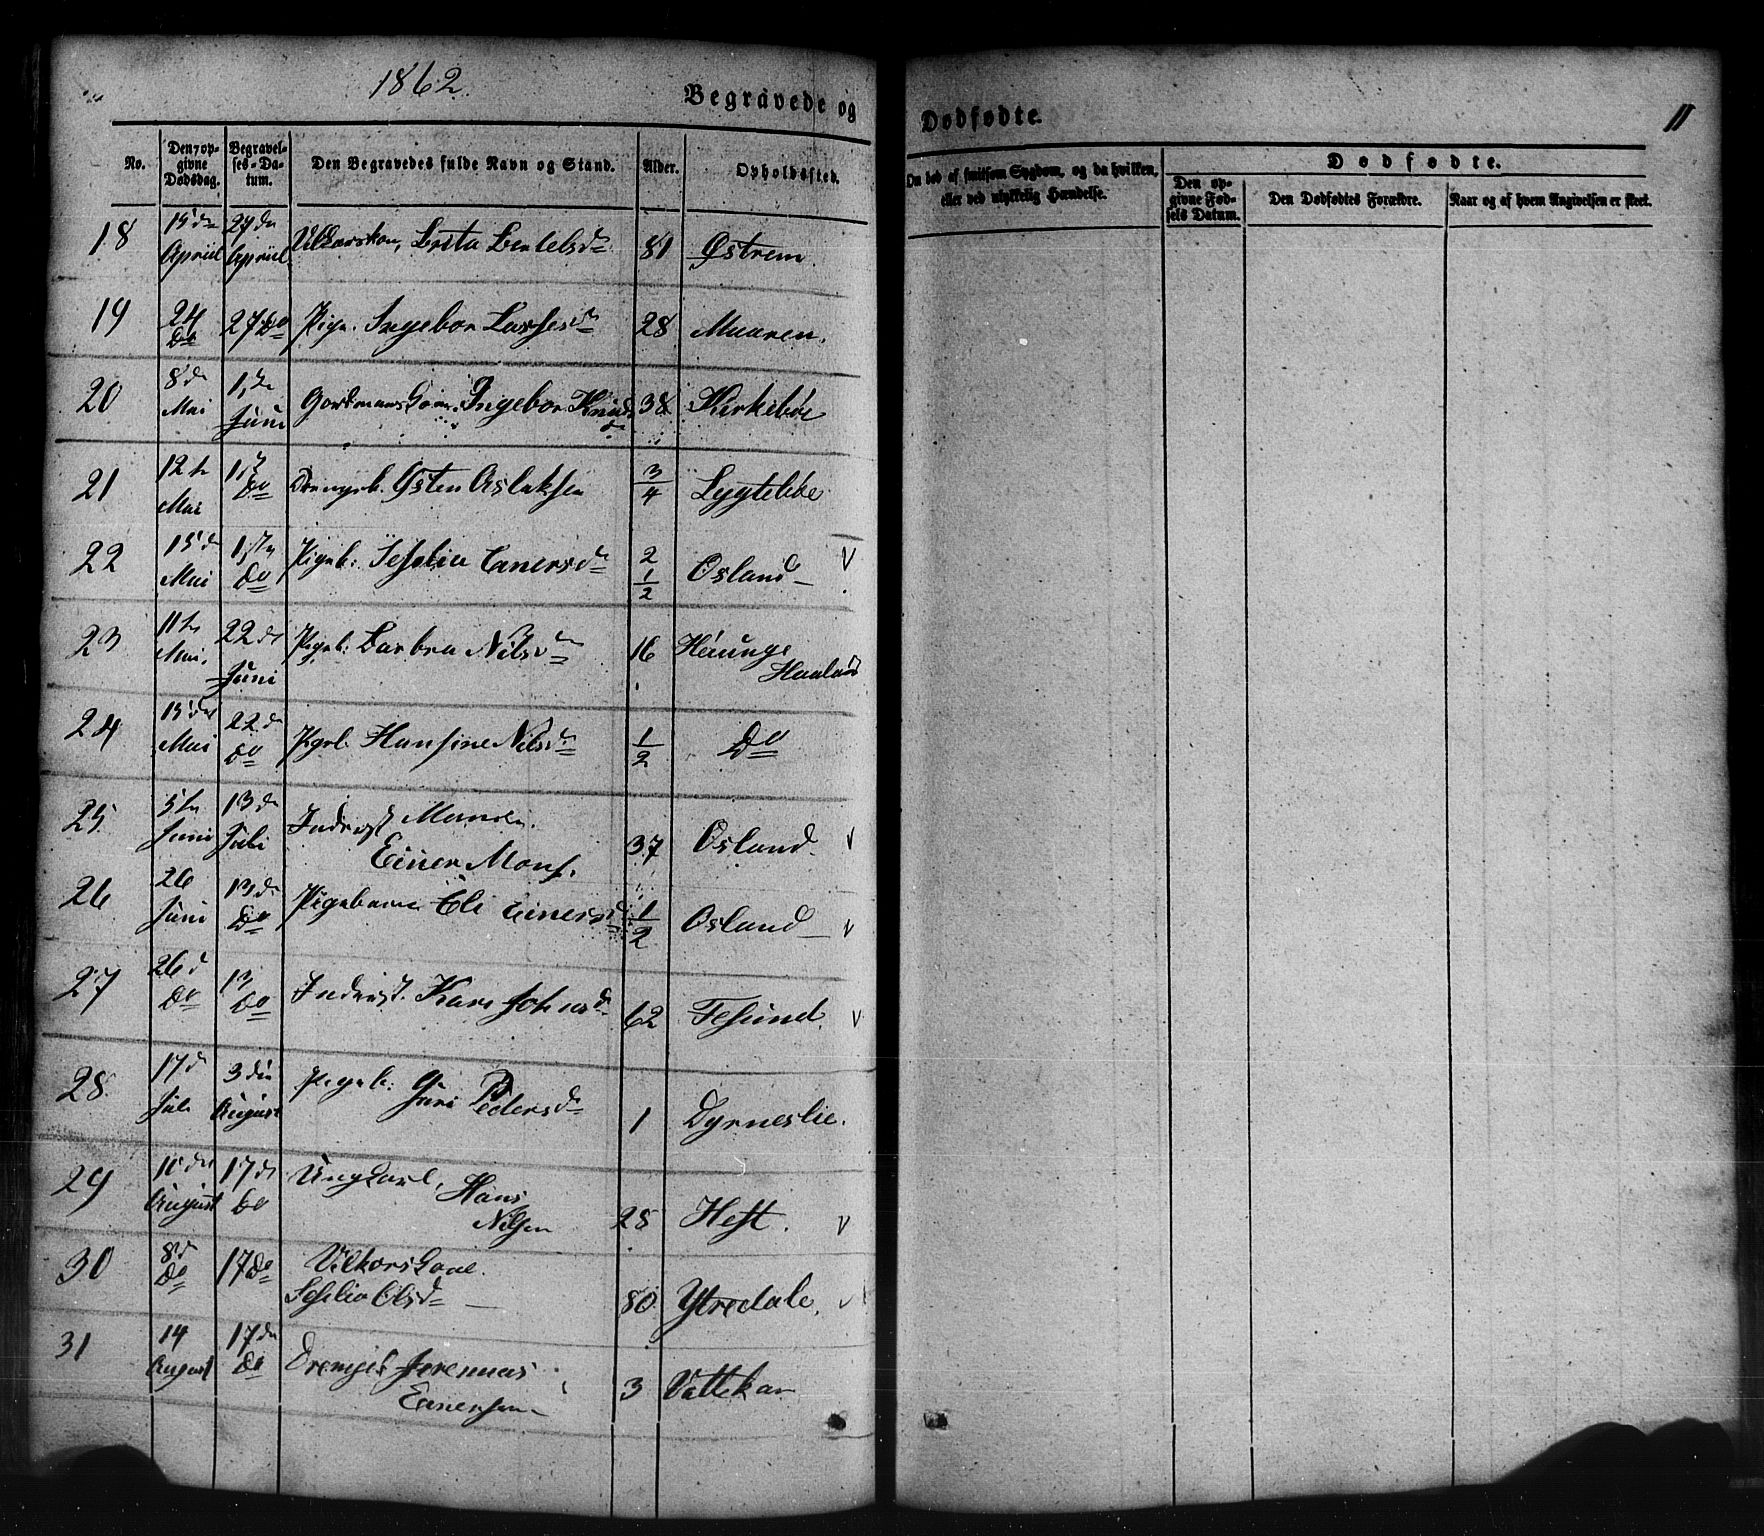 1862.
Begravede og
Dødfødte.
11
No.
Den opgivne Dødsdag.
Begravelses-Datum.
Den Begravedes fulde Navn og Stand.
Alder.
Opholdssted.
Om død af smitsom Sygdom, og da hvilken,
eller ved ulykkelig Hændelse.
Dødfødte.
Den opgivne Fødsels Datum.
Den Dødfødtes Forældre.
Naar og af hvem Angivelsen er skeet.
18 15de April 27de April Vilkorskone, Brita Bentelsdr 81 Østrem
19 24 Do 27 Do Pige. Ingebor Larsesdr 28 Maaren.
20 8de Mai 1ste Juni Gordmans Kone. Ingebor Knudsdr 38 Kirkebøe
21 12te Mai 1ste Do Drengeb. Østen Aslaksen 3/4 Lygtebøe
22 15de Mai 1ste Do Pigeb: Sesselia Einersdr 2 1/2 Osland V
23 11te Mai. 22de Juni Pigeb: Barbra Nilsdr 16 Høiunge Haaland
24 15de Mai 22de Do Pigeb. Hansine Nilsdr 1/2 Do
25 5te Juni 13de Juli Inderst Manden. Einer Mons. 37 Osland V
26 26 Juni 13de Do Pigebarn Eli Einersdr 1/2 Osland V
27 26de Do 13 Do Inderst. Kari Johnsdr 62 Tesund. V
28 17de Juli 3die August Pigeb: Guri Pedersdr 1 Dyrneslie.
29 10de August 17de Do Ungkarl, Hans Nilsen 25 Heft. V
30 8de Do 17 Do Vilkors Kone. Seselia Olsdr 80 Ytredale. V
31 14 August 17de Do Drengeb Jeremias Einersen 3 Vattekar